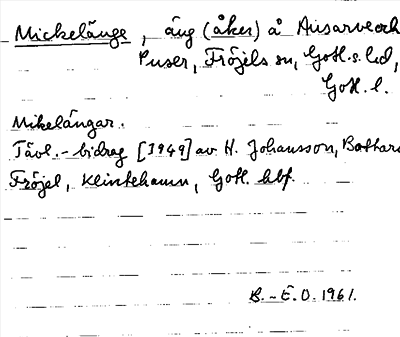 Mickelänge, äng (åker) å Ansarve och
Puser, Fröjels sn, Gotl. s. hd,
Gotl. l.
Mikelängar.
Tävl.-bidrag [1949] av H. Johansson, Bothars
Fröjel, Klintehamn, Gotl. hbf.
B.-E.O. 1961.